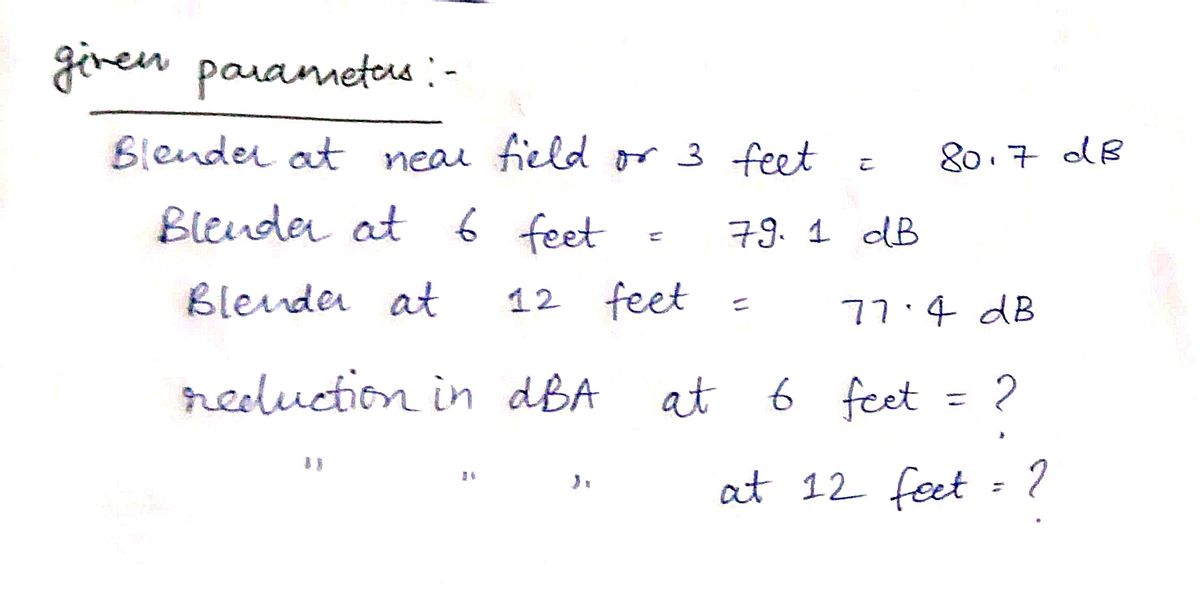 given parameters :-
Blender at near field or 3 feet = 80.7 dB
Blender at 6 feet = 79.1 dB
Blender at 12 feet = 77.4 dB
reduction in dBA at 6 feet = ?
" " " at 12 feet = ?